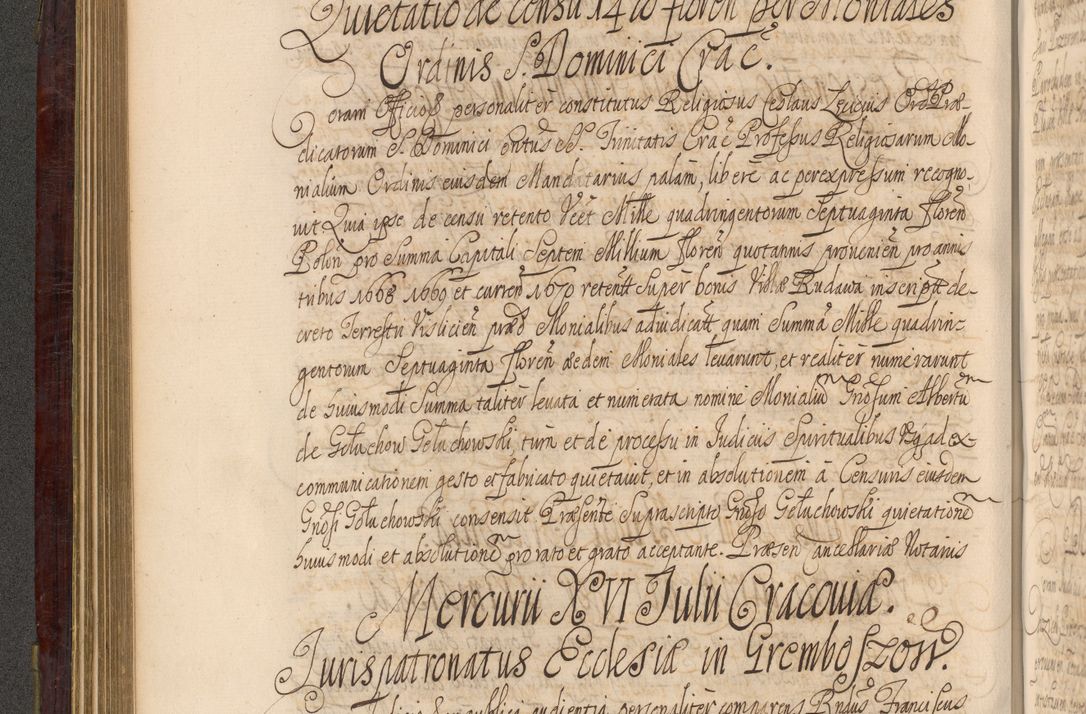 Quietatio de censu 1470 floren per Moniales
Ordinis S. Dominici Crac.
Coram Officioq personaliter constitutus Religiosus Ceslaus Ord Præ-
dicatorum S. Dominici Sttus SS. Trinitatis Crac Professus Religiosarum Mo-
nialium Ordinis eiusdem Mandatarius palam, libere ac per expressum recogno-
vit Quia ipse de censu retento Vcet Mille quadringentorum Septuaginta floren
Polon pro Summa Capitali Septem Millium floren quotannis provenien pro annis
tribus 1668 1669 et curren 1670 retentt super bonis Villæ Rudawa inscriptt de-
creto Terrestri Vislicien præd Monialibus adiudicatt quam Summa Mille quadrin-
gentorum Septuaginta floren eædem Moniales levarunt, et realiter numerarunt
de huiusmodi Summa taliter levata et numerata nomine Monialiu Gnosum Albertu
de Gołuchow Gołuchowski, tum et de processu in Judiciis Spiritualibus ad ex-
communicationem gesto et fabricato quietavit, et in absolutionem à Censuris eiusdem
Gnosi Gołuchowski consensit Præsente Suprascripto Gnoso Gołuchowski quietatione
huiusmodi et absolutione pro rato et grato acceptante. Præsen ancellariæ Notariis
Mercurii XVI Julii Cracoviæ.
Jurispatronatus Ecclesiæ in Gremboszow.
publica audientia personaliter comparens Rndus Franciscus